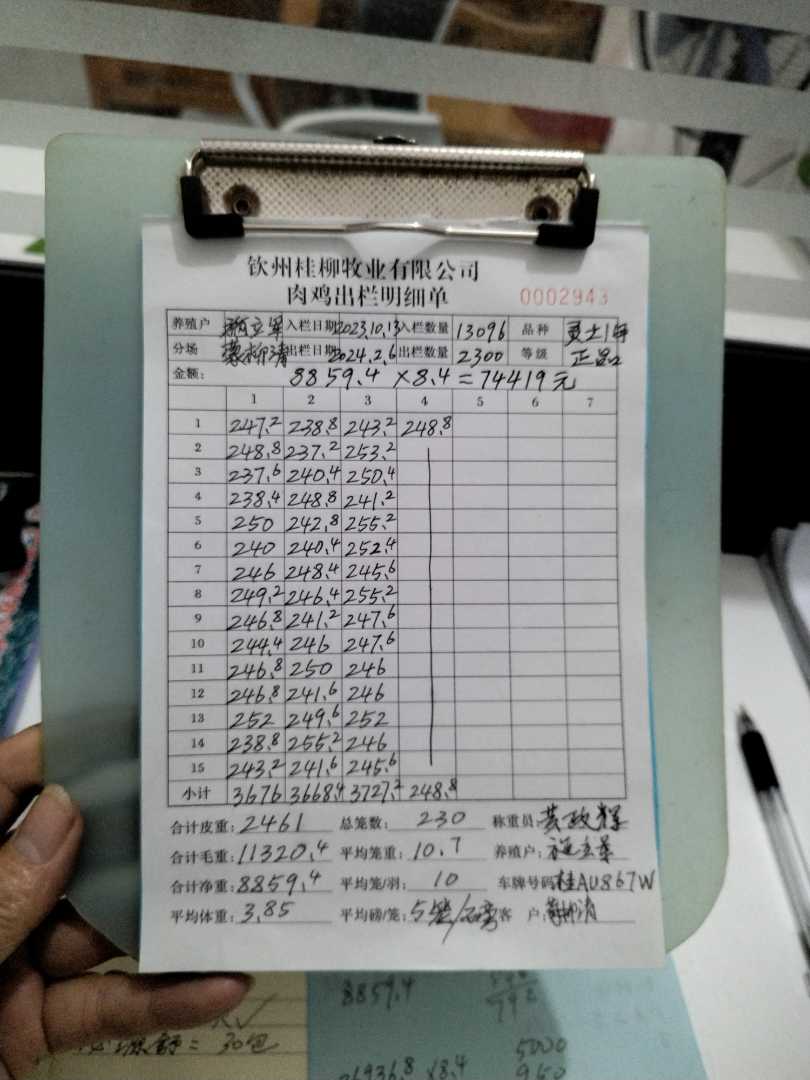 钦州桂柳牧业有限公司
肉鸡出栏明细单 0002943
养殖户 入栏日期 2023.10.13 入栏数量 13096 品种
分场 出栏日期 2024.2.6 出栏数量 2300 等级 正品
金额: 8859.4×8.4=74419元
1 2 3 4 5 6 7
1 247.2 238.8 243.2 248.8
2 248.8 237.2 253.2
3 237.6 240.4 250.4
4 238.4 248.8 241.2
5 250 242.8 255.2
6 240 240.4 252.4
7 246 248.4 245.6
8 249.2 246.4 255.2
9 246.8 241.2 247.6
10 244.4 246 247.6
11 246.8 250 246
12 246.8 241.6 246
13 252 249.6 252
14 238.8 255.2 246
15 243.2 241.6 245.6
小计 3676 3668.4 3727.2 248.8
合计皮重: 2461 总笼数: 230 称重员:
合计毛重: 11320.4 平均笼重: 10.7 养殖户:
合计净重: 8859.4 平均笼/羽: 10 车牌号码 桂AU867W
平均体重: 3.85 平均磅/笼: 5笼/磅 客户:
8859.4
792
=30包
5000
26936.8×8.4
950